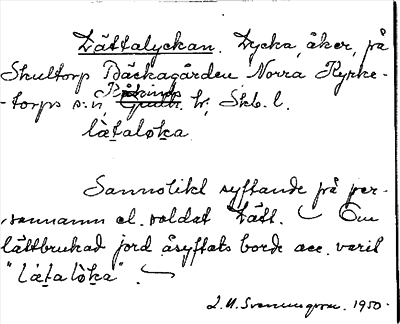 Lättalyckan. Lycka, åker, på
Skultorp Bäckagården Norra Kyrke-
-torps s:n, Kåkinds hr, Skb. l.
làtalòka
Sannolikt syftande på per-
sonnamn el. soldat Lätt. — Om
lättbrukad jord åsyftats borde acc. varit
"làtalòka". —
1950.